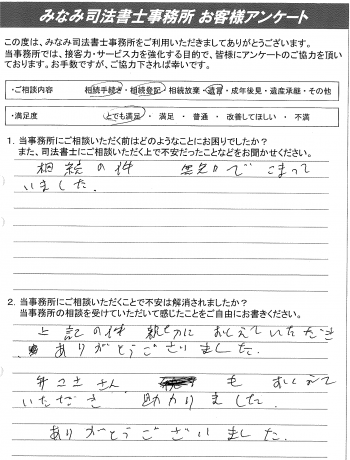 みなみ司法書士事務所 お客様アンケート
この度は、みなみ司法書士事務所をご利用いただきましてありがとうございます。
当事務所では、接客力・サービス力を強化する目的で、皆様にアンケートのご協力を頂い
ております。お手数ですが、ご協力下されば幸いです。
・ご相談内容 相続手続き・相続登記・相続放棄・遺言・成年後見・遺産承継・その他
・満足度 とても満足 ・ 満足 ・ 普通 ・ 改善してほしい ・ 不満
1. 当事務所にご相談いただく前はどのようなことにお困りでしたか?
また、司法書士にご相談いただく上で不安だったことなどをお聞かせください。
相続の件 でこまって
いました.
2. 当事務所にご相談いただくことで不安は解消されましたか?
当事務所の相談を受けていただいて感じたことをご自由にお書きください。
上記の件 親切におしえていただき
ありがとうございました.
さん も おしえて
いただき 助かりました
ありがとうございました.